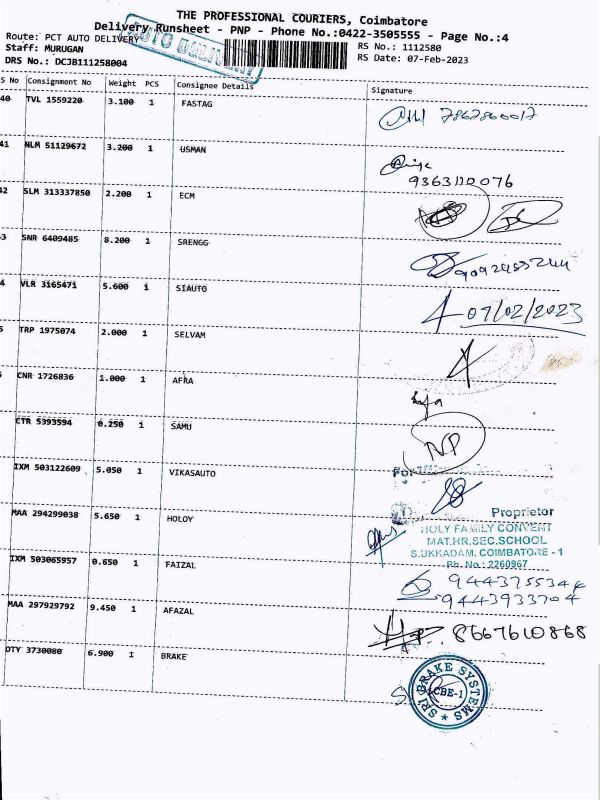 THE PROFESSIONAL COURIERS, Coimbatore
Delivery Runsheet - PNP - Phone No.:0422-3505555 - Page No.:4
Route: PCT AUTO DELIVERY
AUTO DELIVERY
RS No.: 1112580
Staff: MURUGAN
RS Date: 07-Feb-2023
DRS No.: DCJB111258004
S No Consignment No Weight PCS Consignee Details Signature
40 TVL 1559220 3.100 1 FASTAG
41 NLM 51129672 3.200 1 USMAN
9363110076
42 SLM 313337850 2.200 1 ECM
3 SNR 6409485 8.200 1 SRENGG
4 VLR 3165471 5.600 1 SIAUTO 07/02/2023
5 TRP 1975074 2.000 1 SELVAM
CNR 1726836 1.000 1 AFRA
CTR 5393594 0.250 1 SAMU NP
IXM 503122609 5.050 1 VIKASAUTO
For
Proprietor
MAA 294299038 5.650 1 HOLOY
HOLY FAMILY CONVENT
MAT.HR.SEC.SCHOOL
S.UKKADAM. COIMBATORE - 1
Ph.No.: 2260967
IXM 503065957 0.650 1 FAIZAL
9443755344
9443933704
MAA 297929792 9.450 1 AFAZAL 8667610868
OTY 3730080 6.900 1 BRAKE
SRI BRAKE SYSTEMS
CBE-1